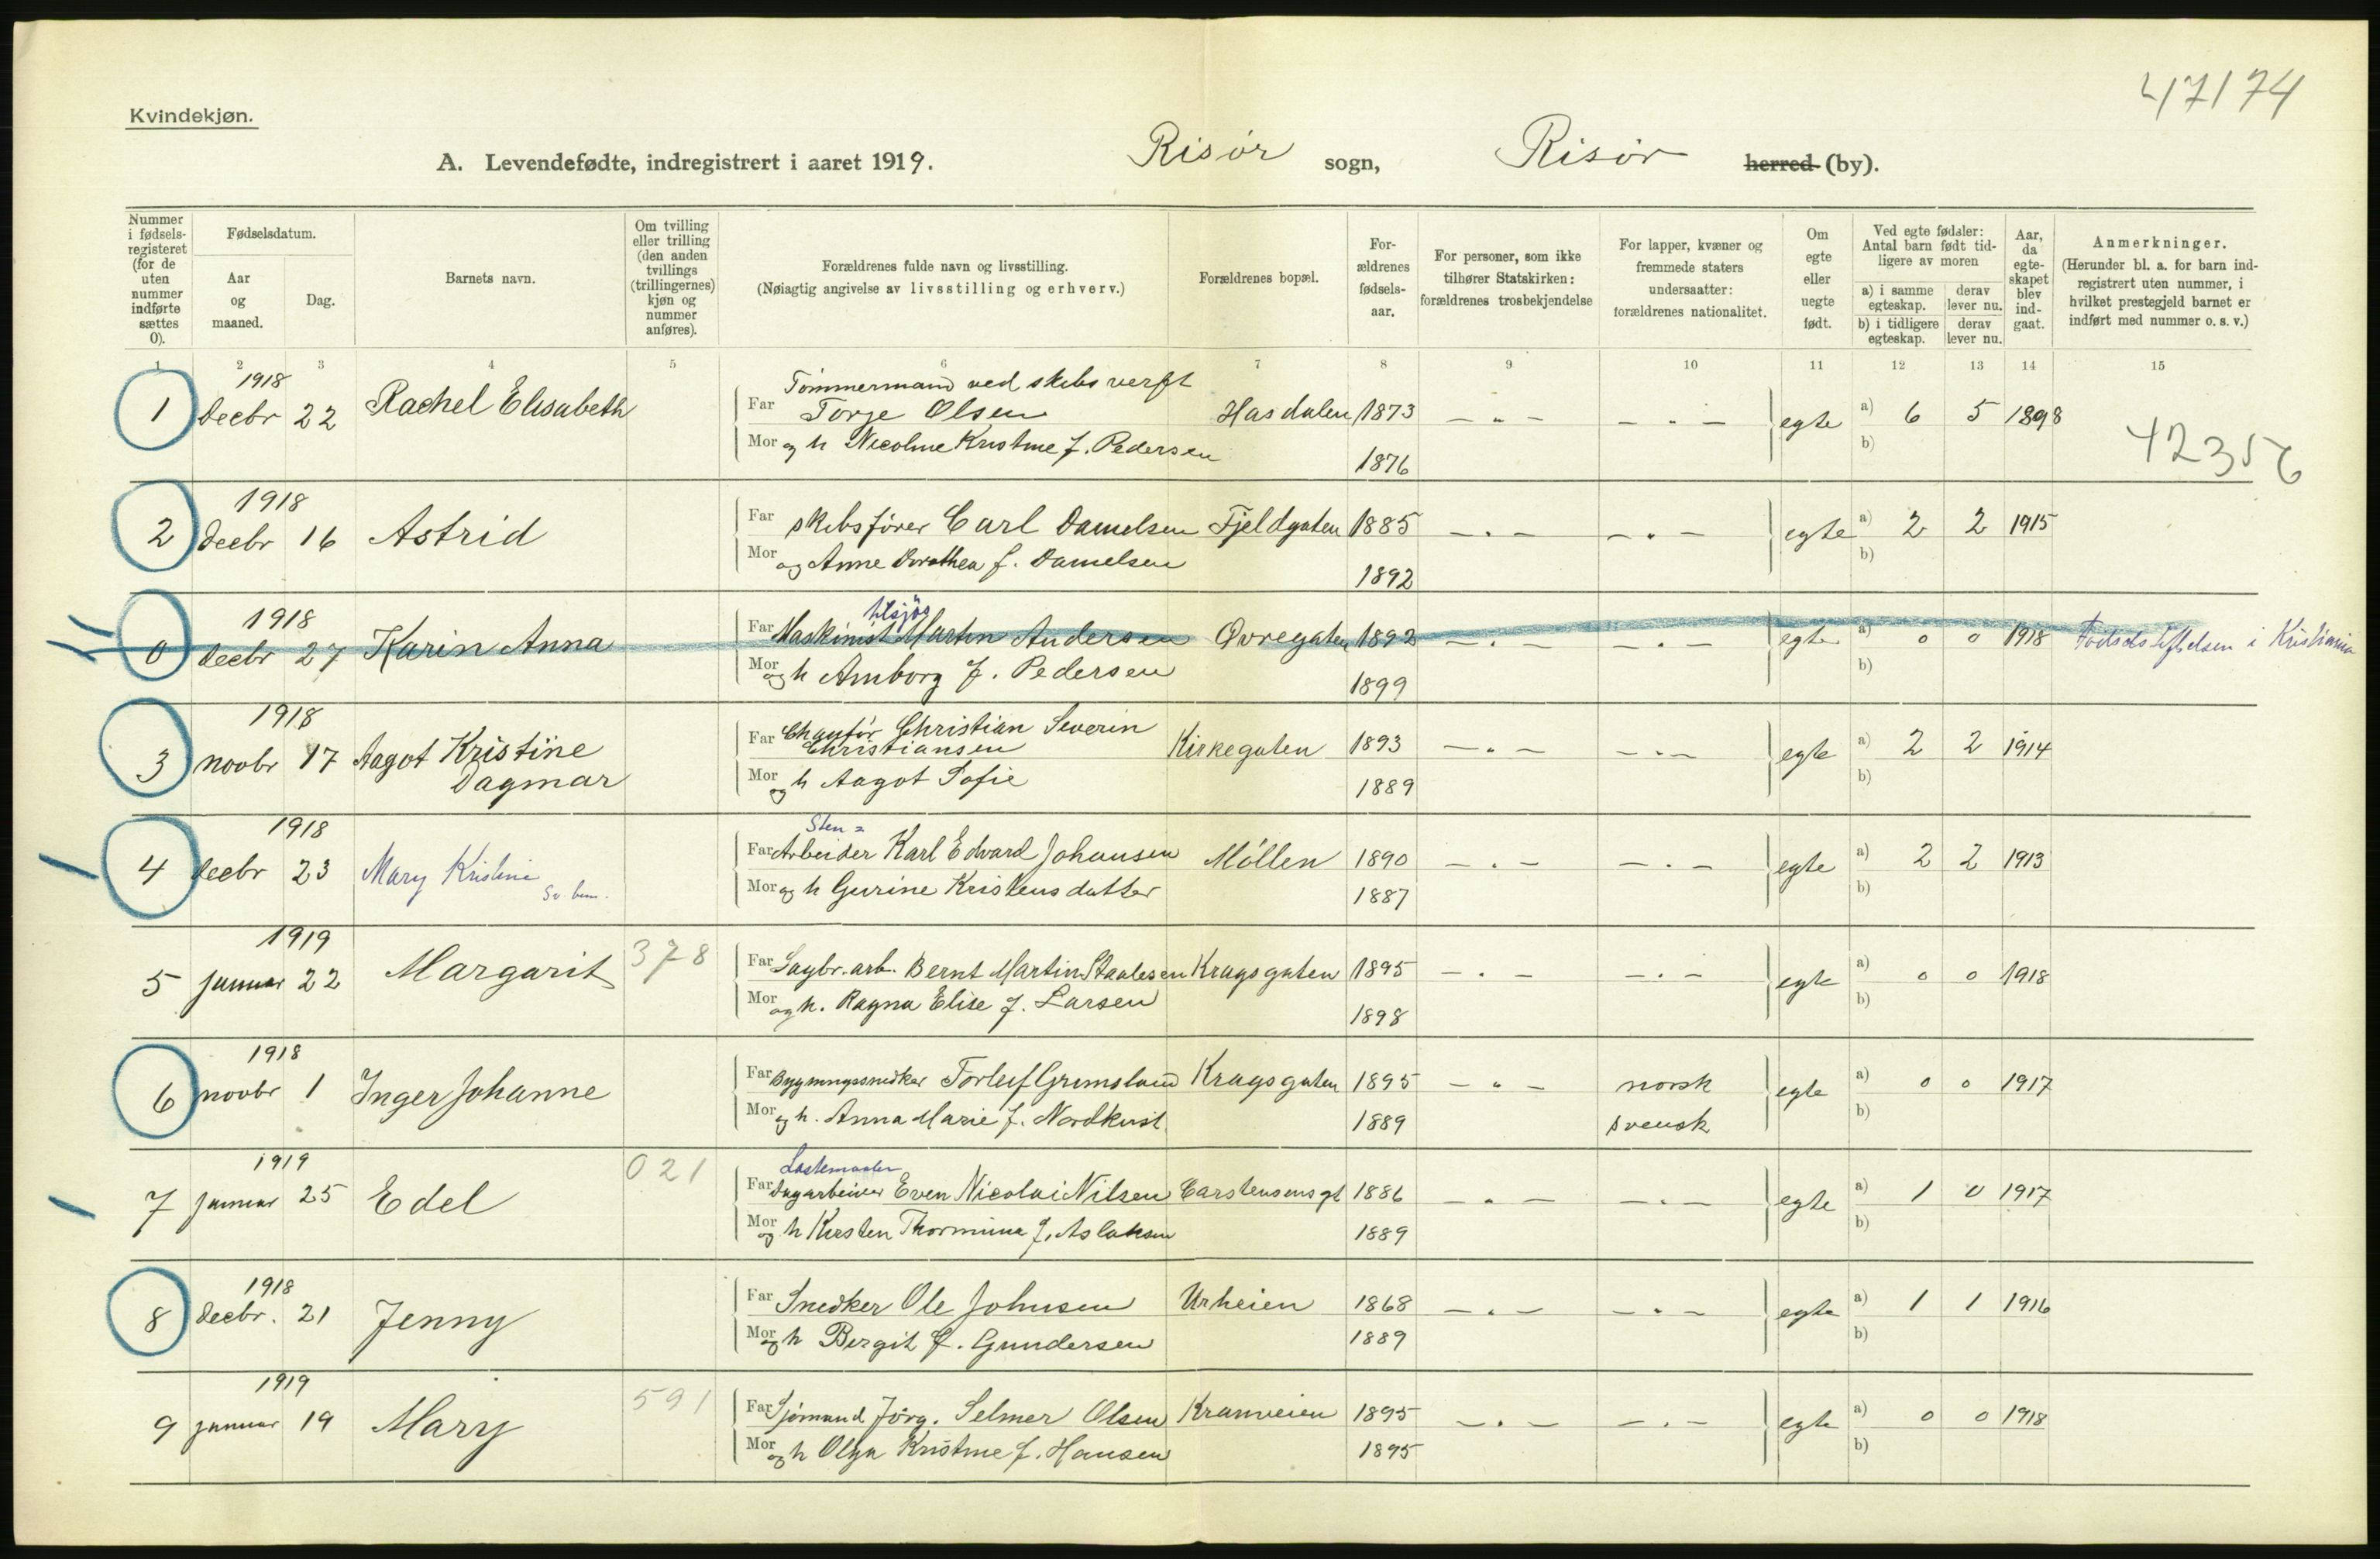 47174
Kvindekjøn.
A. Levendefødte, indregistrert i aaret 1919. Risør sogn, Risør herred (by).
Nummer i fødsels-registeret (for de uten nummer indførte sættes 0).
Fødselsdatum.
Aar og maaned.
Dag.
Barnets navn.
Om tvilling eller trilling (den anden tvillings (trillingernes) kjøn og nummer anføres).
Forældrenes fulde navn og livsstilling.
(Nøiagtig angivelse av livsstilling og erhverv.)
Forældrenes bopæl.
For-ældrenes fødsels-aar.
For personer, som ikke tilhører Statskirken: forældrenes trosbekjendelse
For lapper, kvæner og fremmede staters undersaatter: forældrenes nationalitet.
Om egte eller uegte født.
Ved egte fødsler: Antal barn født tid-ligere av moren
a) i samme egteskap. derav lever nu.
b) i tidligere egteskap. derav lever nu.
Aar, da egte-skapet blev ind-gaat.
Anmerkninger.
(Herunder bl. a. for barn ind-registrert uten nummer, i hvilket prestegjeld barnet er indført med nummer o. s. v.)
1 2 3 4 5 6 7 8 9 10 11 12 13 14 15
1918 Tömmermand ved skibsverft
1 decbr 22 Rachel Elisabeth Far Torje Olsen Hasdalen 1873 — " — — " — egte a) 6 5 1898
Mor og h Nicoline Kristine f. Pedersen 1876 b)
42356
1918
2 decbr 16 Astrid Far skibsfører Carl Danielsen Fjeldgaten 1885 — " — — " — egte a) 2 2 1915
Mor og Anne Dorothea f. Danielsen 1892 b)
1918 tilsjøs
0 decbr 27 Karin Anna Far Maskinist Martin Andersen Øvregaten 1892 — " — — " — egte a) 0 0 1918 Fødselsstiftelsen i Kristiania
Mor og h Amborg f. Pedersen 1899 b)
1918
3 novbr 17 Aagot Kristine Dagmar Far Chauför Christian Severin Christiansen Kirkegaten 1893 — " — — " — egte a) 2 2 1914
Mor og h Aagot Sofie 1889 b)
1918 Sten =
4 decbr 23 Mary Kristine Far Arbeider Karl Edvard Johansen Möllen 1890 — " — — " — egte a) 2 2 1913
Mor og h Gurine Kristensdatter 1887 b)
1919
5 januar 22 Margarit 378 Far Sagbr. arb. Bernt Martin Staalesen Kragsgaten 1895 — " — — " — egte a) 0 0 1918
Mor og h. Ragna Elise f. Larsen 1898 b)
1918
6 novbr 1 Inger Johanne Far Bygningssnedker Torleif Grimsland Kragsgaten 1895 — " — norsk egte a) 0 0 1917
Mor og h. Anna Marie f. Nordkvist 1889 svensk b)
1919 Lastemaaler
7 januar 25 Edel 021 Far Dagarbeider Even Nicolai Nilsen Carstensensgt 1886 — " — — " — egte a) 1 0 1917
Mor og h Kirsten Thormine f. Aslaksen 1889 b)
1918
8 decbr. 21 Jenny Far Snedker Ole Johnsen Urheien 1868 — " — — " — egte a) 1 1 1916
Mor og h Bergit f. Gundersen 1889 b)
1919
9 januar 19 Mary 591 Far Sjömand Jörg. Selmer Olsen Kranveien 1895 — " — — " — egte a) 0 0 1918
Mor og h Olga Kristine f. Hansen 1895 b)